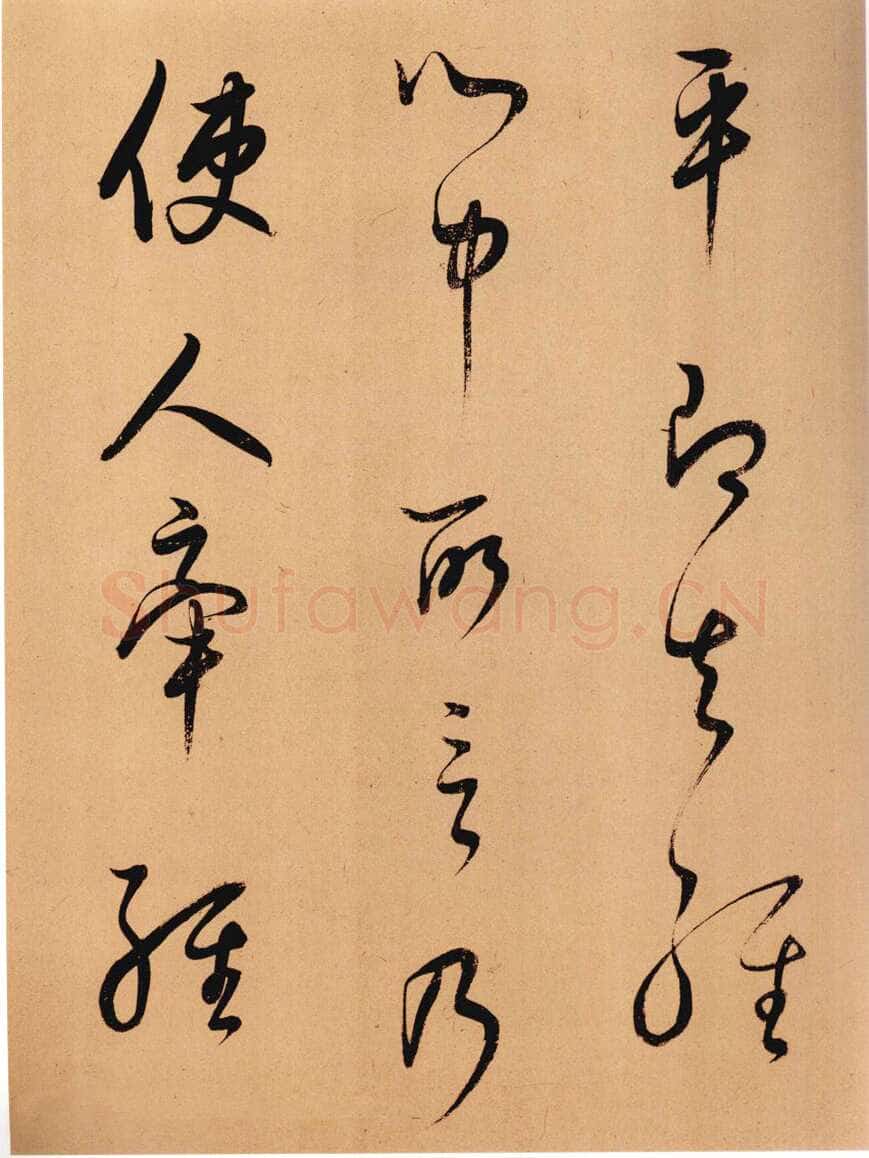 平即失經
心中所言乃
使人牽經
Shufawang.CN